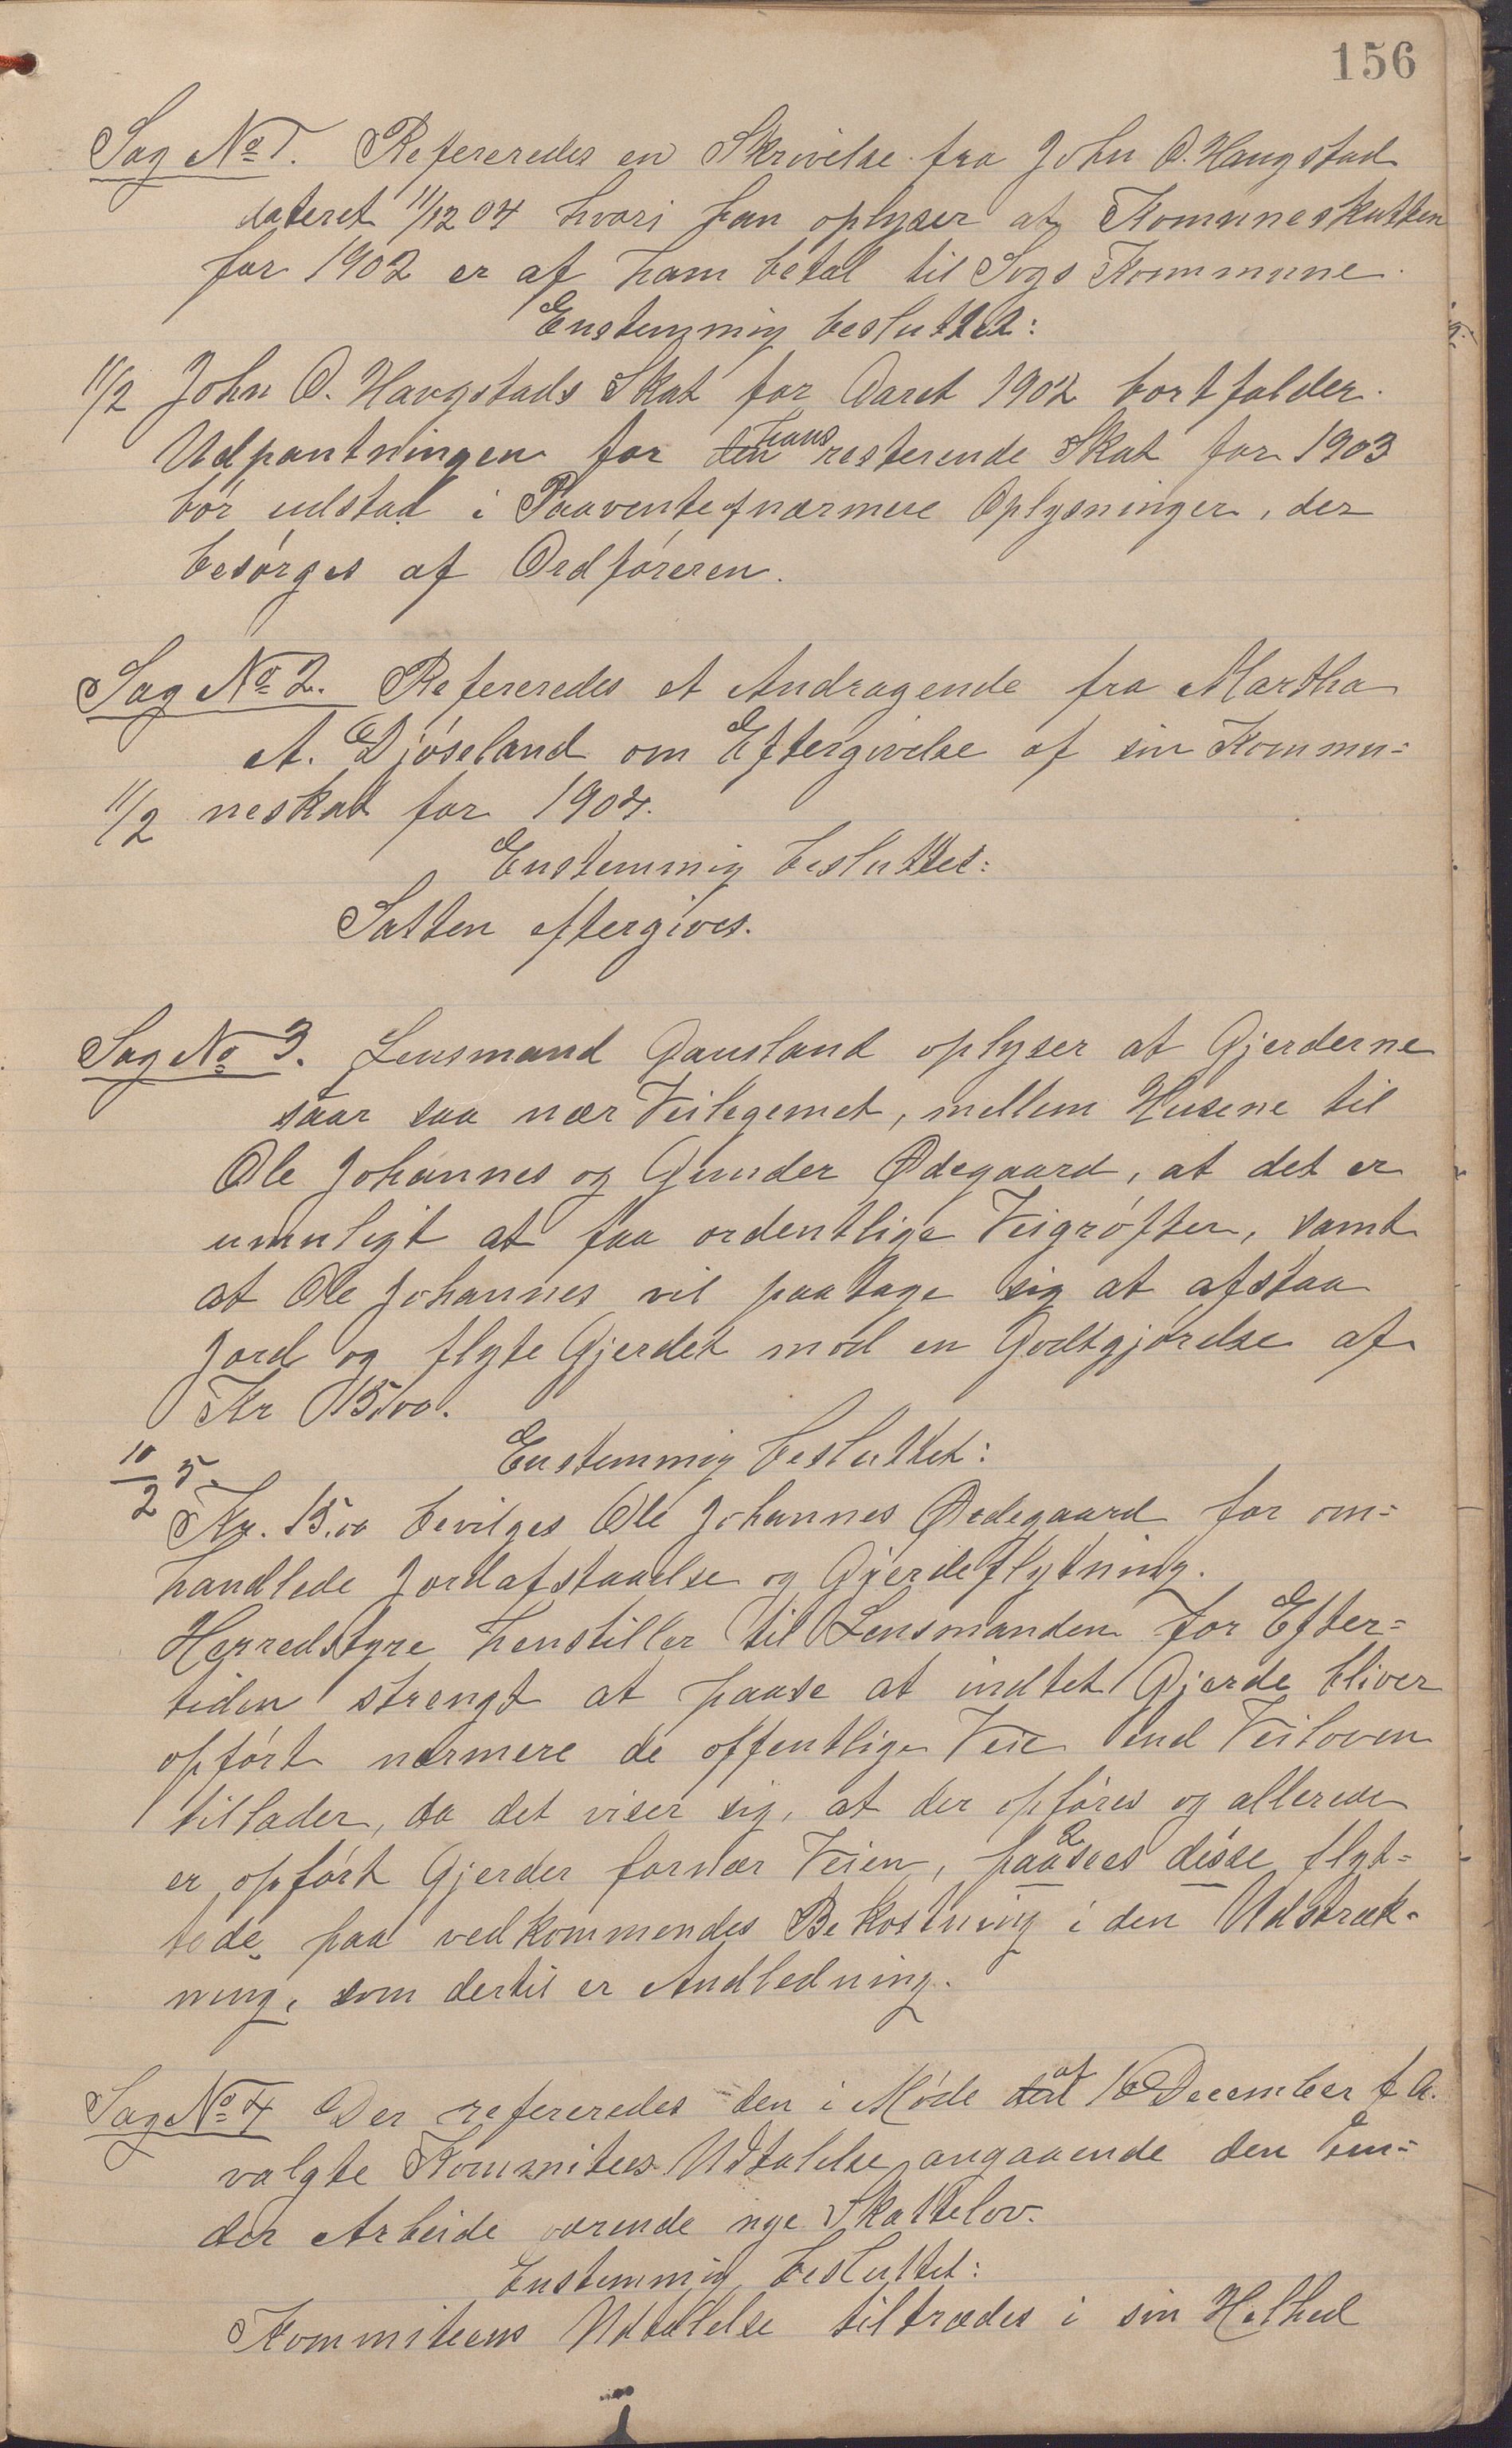 156
Sag No 1. Refereredes en Skrivelse fra John O. Haugstad
dateret 11/12 04 hvori han oplyser at Komuneskatten
for 1902 er af ham betal til Sogs Kommune.
Enstemmig besluttet:
11/2 John O. Haugstads Skat for Aaret 1902 bortfalder.
Udpantningen for den hans resterende Skat for 1903
bør udstad i Paavente af nærmere Oplysninger, der
besørges af Ordføreren.
Sag No 2. Refereredes et Andragende fra Martha
A. Djøseland om Eftergivelse af sin Kommu=
11/2 neskat for 1904.
Enstemmig besluttet:
Satten eftergives.
Sag No 3. Lensmand Gausland oplyser at Gjerderne
staar saa nær Veilegemet, mellem Husene til
Ole Johannes og Gunder Ødegaard, at det er
umuligt at faa ordentlige Veigrøfter, samt
at Ole Johannes vil paatage sig at afstaa
Jord og flyte Gjerdet mod en Godtgjørelse af
Kr 15,00.
Enstemmig besluttet:
10/2 5.
Kr. 15,00 bevilges Ole Johannes Ødegaard for om=
handlede Jordafstaaelse og Gjerdeflytning.
Herredstyre henstiller til Lensmanden for Efter=
tiden strengt at paase at indtet Gjerde bliver
opført nærmere de offentlige Veie end Veiloven
tillader, da det viser sig, at der opføres og allerede
er opført Gjerder fornær Veien, paasees disse flyt=
tede paa vedkommendes Bekostning i den Udstræk=
ning, som dertil er Andledning.
Sag No 4 Der refereredes den i Møde den af 16 December f. A.
valgte Kommitees Udtalelse angaaende den un=
der Arbeide værende nye Skattelov.
Enstemmig besluttet:
Kommiteens Udtalelse tiltrædes i sin Helhed